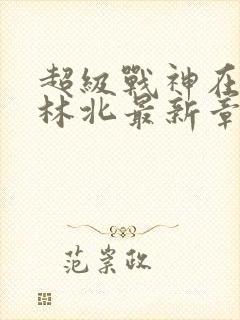 超級戰神在
林北最新章
范崇政